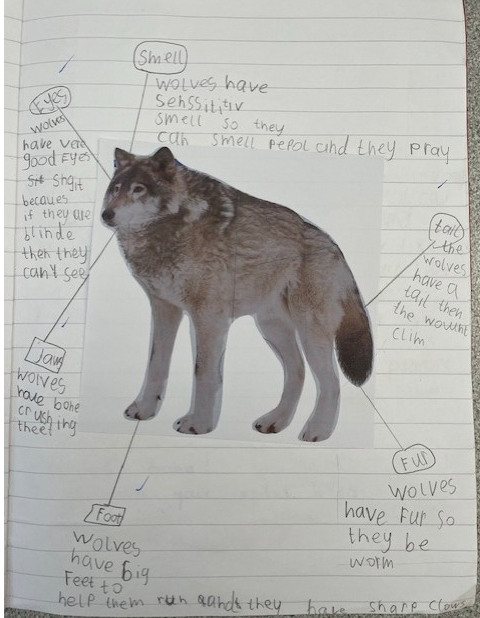 Smell
wolves have
senssititiv
smell so they
can smell pepol and they pray
Eyes
wolves
have very
good Eyes
shgit
becaues
if they are
blinde
then they
can't see
tail
the
wolves
have a
tail then
the wount
clim
Jaw
wolves
have bone
crushing
theet
Fur
wolves
have Fur so
they be
worm
Foot
wolves
have big
Feet to
help them run and they have sharp claws